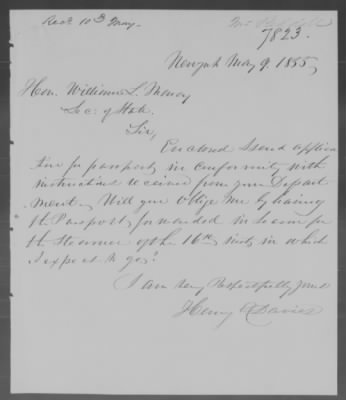 Recd 10th May.
7823.
New york May 9. 1855,
Hon. William L. Marcy
Sec: of State.
Sir,
Enclosed I send applica
tion for passport in conformity with
instructions received from your Depart
ment. Will you oblige me by having
the Passport forwarded in season for
the Steamer of the 16th inst, in which
I expect to go?
I am very Respectfully yours
Henry E Davies